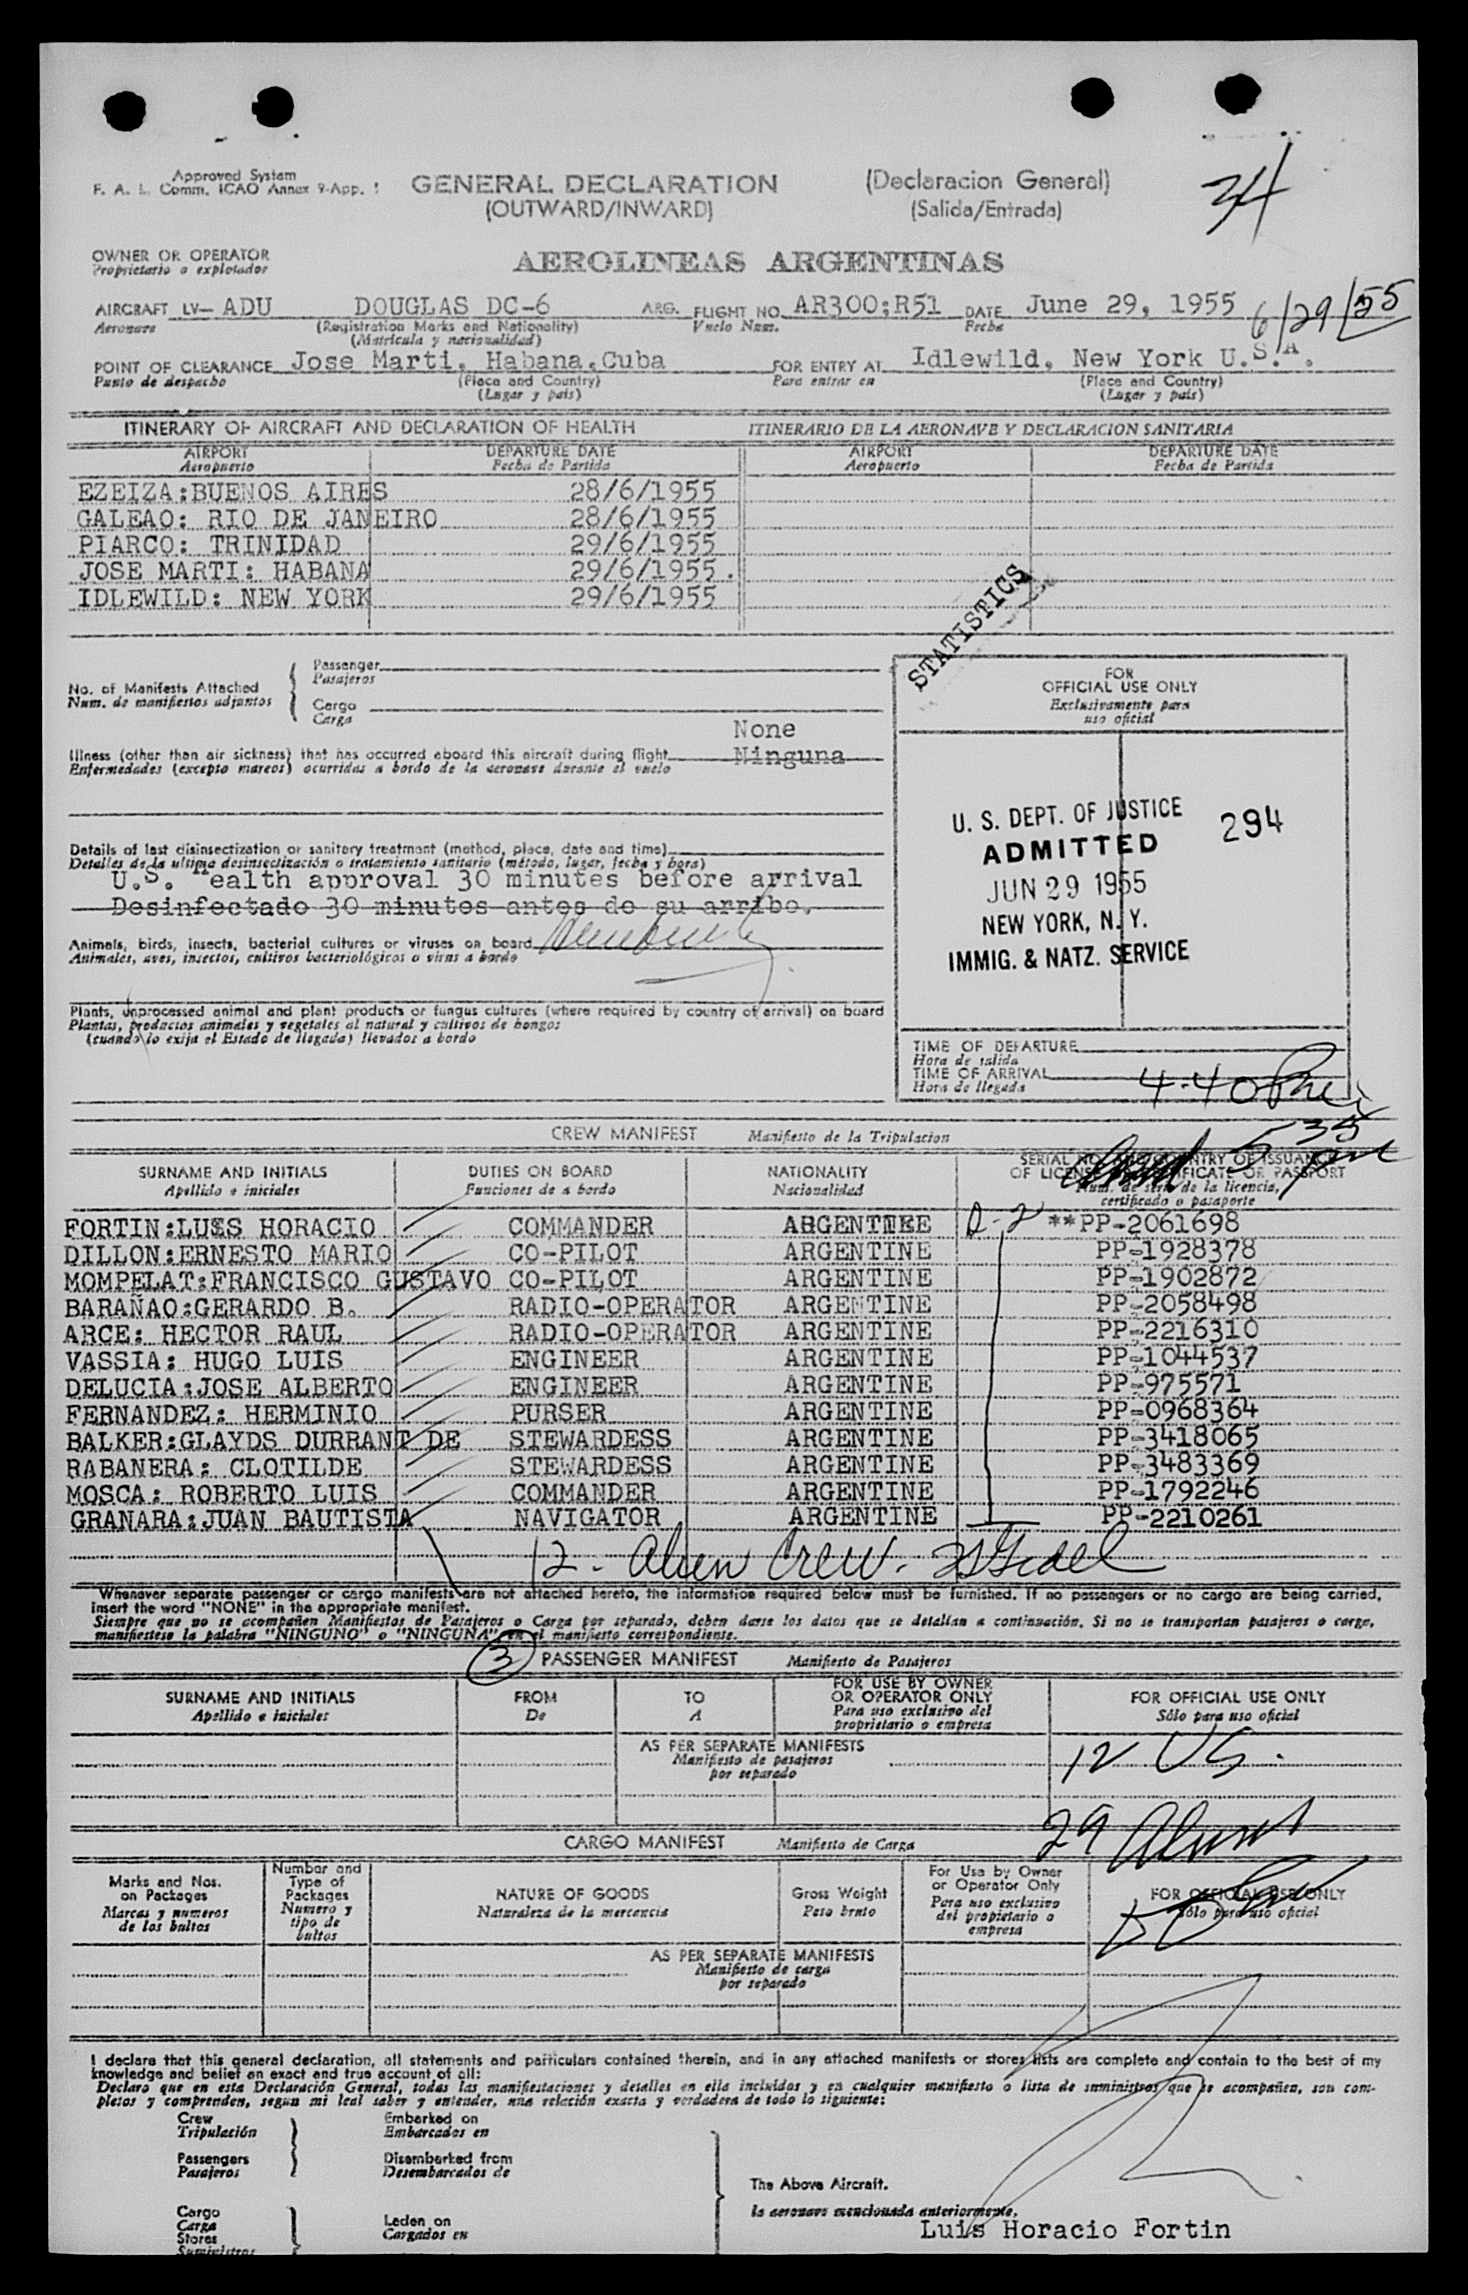 34
Approved System
F. A. L. Comm. ICAO Annex 9-App. 1
GENERAL DECLARATION
(Declaracion General)
(OUTWARD/INWARD)
(Salida/Entrada)
OWNER OR OPERATOR
Proprietario o explotador
AEROLINEAS ARGENTINAS
AIRCRAFT LV— ADU DOUGLAS DC-6 ARG. FLIGHT NO. AR300;R51 DATE June 29, 1955
6/29/55
Aeronave (Registration Marks and Nationality) Vuelo Num. Fecha
(Matricula y nacionalidad)
POINT OF CLEARANCE Jose Marti, Habana,Cuba FOR ENTRY AT Idlewild, New York U.S.A.
Punto de despacho (Place and Country) Para entrar en (Place and Country)
(Lugar y pais) (Lugar y pais)
ITINERARY OF AIRCRAFT AND DECLARATION OF HEALTH ITINERARIO DE LA AERONAVE Y DECLARACION SANITARIA
AIRPORT DEPARTURE DATE AIRPORT DEPARTURE DATE
Aeropuerto Fecha de Partida Aeropuerto Fecha de Partida
EZEIZA:BUENOS AIRES 28/6/1955
GALEAO: RIO DE JANEIRO 28/6/1955
PIARCO: TRINIDAD 29/6/1955
JOSE MARTI: HABANA 29/6/1955.
IDLEWILD: NEW YORK 29/6/1955
STATISTICS
No. of Manifests Attached
Num. de manifiestos adjuntos
Passenger
Pasajeros
Cargo
Carga
FOR
OFFICIAL USE ONLY
Exclusivamente para
uso oficial
None
Illness (other than air sickness) that has occurred aboard this aircraft during flight Ninguna
Enfermedades (excepto mareos) ocurridas a bordo de la aeronave durante el vuelo
U. S. DEPT. OF JUSTICE
ADMITTED 294
JUN 29 1955
NEW YORK, N. Y.
IMMIG. & NATZ. SERVICE
Details of last disinsectization or sanitary treatment (method, place, date and time)
Detalles de la ultima desinsectización o tratamiento sanitario (método, lugar, fecha y hora)
U.S. ealth approval 30 minutes before arrival
Desinfectado 30 minutos antes de su arribo.
Animals, birds, insects, bacterial cultures or viruses on board
Animales, aves, insectos, cultivos bacteriológicos o virus a bordo
Plants, unprocessed animal and plant products or fungus cultures (where required by country of arrival) on board
Plantas, productos animales y vegetales al natural y cultivos de hongos
(cuando lo exija el Estado de llegada) llevados a bordo
TIME OF DEPARTURE
Hora de salida
TIME OF ARRIVAL 4:40 Pm
Hora de llegada
5 35 pm
CREW MANIFEST Manifiesto de la Tripulacion
SURNAME AND INITIALS DUTIES ON BOARD NATIONALITY SERIAL NO. AND COUNTRY OF ISSUANCE
OF LICENSE CERTIFICATE OR PASSPORT
Apellido e iniciales Funciones de a bordo Nacionalidad Num. de serie de la licencia,
certificado o pasaporte
FORTIN:LUIS HORACIO COMMANDER ARGENTINE D-2 **PP-2061698
DILLON:ERNESTO MARIO CO-PILOT ARGENTINE PP-1928378
MOMPELAT:FRANCISCO GUSTAVO CO-PILOT ARGENTINE PP-1902872
BARAÑAO:GERARDO B. RADIO-OPERATOR ARGENTINE PP-2058498
ARCE: HECTOR RAUL RADIO-OPERATOR ARGENTINE PP-2216310
VASSIA: HUGO LUIS ENGINEER ARGENTINE PP-1044537
DELUCIA:JOSE ALBERTO ENGINEER ARGENTINE PP-975571
FERNANDEZ: HERMINIO PURSER ARGENTINE PP-0968364
BALKER:GLAYDS DURRANT DE STEWARDESS ARGENTINE PP-3418065
RABANERA: CLOTILDE STEWARDESS ARGENTINE PP-3483369
MOSCA: ROBERTO LUIS COMMANDER ARGENTINE PP-1792246
GRANARA:JUAN BAUTISTA NAVIGATOR ARGENTINE PP-2210261
12 - Alien Crew.
Whenever separate passenger or cargo manifests are not attached hereto, the information required below must be furnished. If no passengers or no cargo are being carried,
insert the word "NONE" in the appropriate manifest.
Siempre que no se acompañen Manifiestos de Pasajeros o Carga por separado, deben darse los datos que se detallan a continuación. Si no se transportan pasajeros o carga,
manifiestese la palabra "NINGUNO" o "NINGUNA" en el manifiesto correspondiente.
3 PASSENGER MANIFEST Manifiesto de Pasajeros
SURNAME AND INITIALS FROM TO FOR USE BY OWNER
OR OPERATOR ONLY FOR OFFICIAL USE ONLY
Apellido e iniciales De A Para uso exclusivo del
propietario o empresa Sólo para uso oficial
AS PER SEPARATE MANIFESTS
Manifiesto de pasajeros
por separado
12 US.
29 Aliens
CARGO MANIFEST Manifiesto de Carga
Marks and Nos.
on Packages
Marcas y numeros
de los bultos
Number and
Type of
Packages
Numero y
tipo de
bultos
NATURE OF GOODS
Naturaleza de la mercancia
Gross Weight
Peso bruto
For Use by Owner
or Operator Only
Para uso exclusivo
del propietario o
empresa
FOR OFFICIAL USE ONLY
Sólo para uso oficial
AS PER SEPARATE MANIFESTS
Manifiesto de carga
por separado
I declare that this general declaration, all statements and particulars contained therein, and in any attached manifests or stores lists are complete and contain to the best of my
knowledge and belief an exact and true account of all:
Declaro que en esta Declaración General, todas las manifiestaciones y detalles en ella incluidos y en cualquier manifiesto o lista de suministros que se acompañen, son com-
pletos y comprenden, segun mi leal saber y entender, una relación exacta y verdadera de todo lo siguiente:
Crew
Tripulación
Embarked on
Embarcados en
Passengers
Pasajeros
Disembarked from
Desembarcados de
The Above Aircraft.
la aeronave mencionada anteriormente.
Cargo
Carga
Stores
Suministros
Laden on
Cargados en
Luis Horacio Fortin